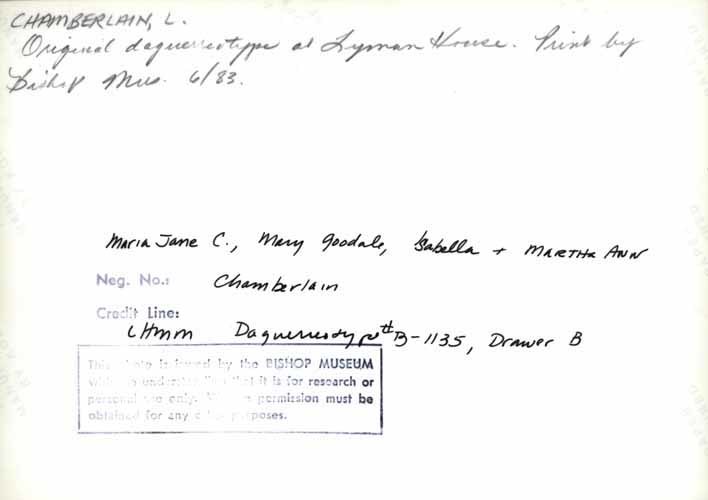 CHAMBERLAIN, L.
Original daguerreotype at Lyman House. Print by
Bishop Mus. 6/83.
Maria Jane C., Mary Goodale, Isabella + MARTHA ANN
Neg. No.: Chamberlain
Credit Line:
LHMM Daguerreotype # B-1135, Drawer B
This photo is issued by the BISHOP MUSEUM
with the understanding that it is for research or
personal use only. Written permission must be
obtained for any other purposes.